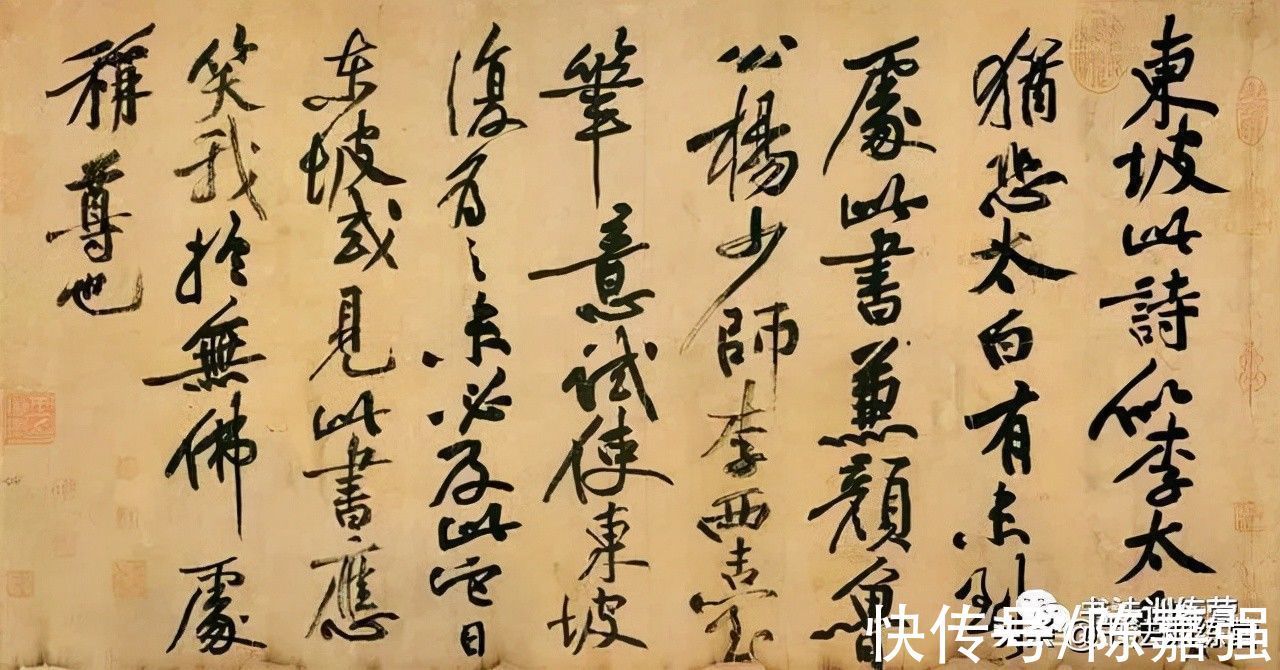 東坡此詩似李太
猶恐太白有未到
處此書兼顏魯
公楊少師李西臺
筆意試使東坡
復為之未必及此它日
東坡或見此書應
笑我於無佛處
稱尊也
快传号/陈嘉强